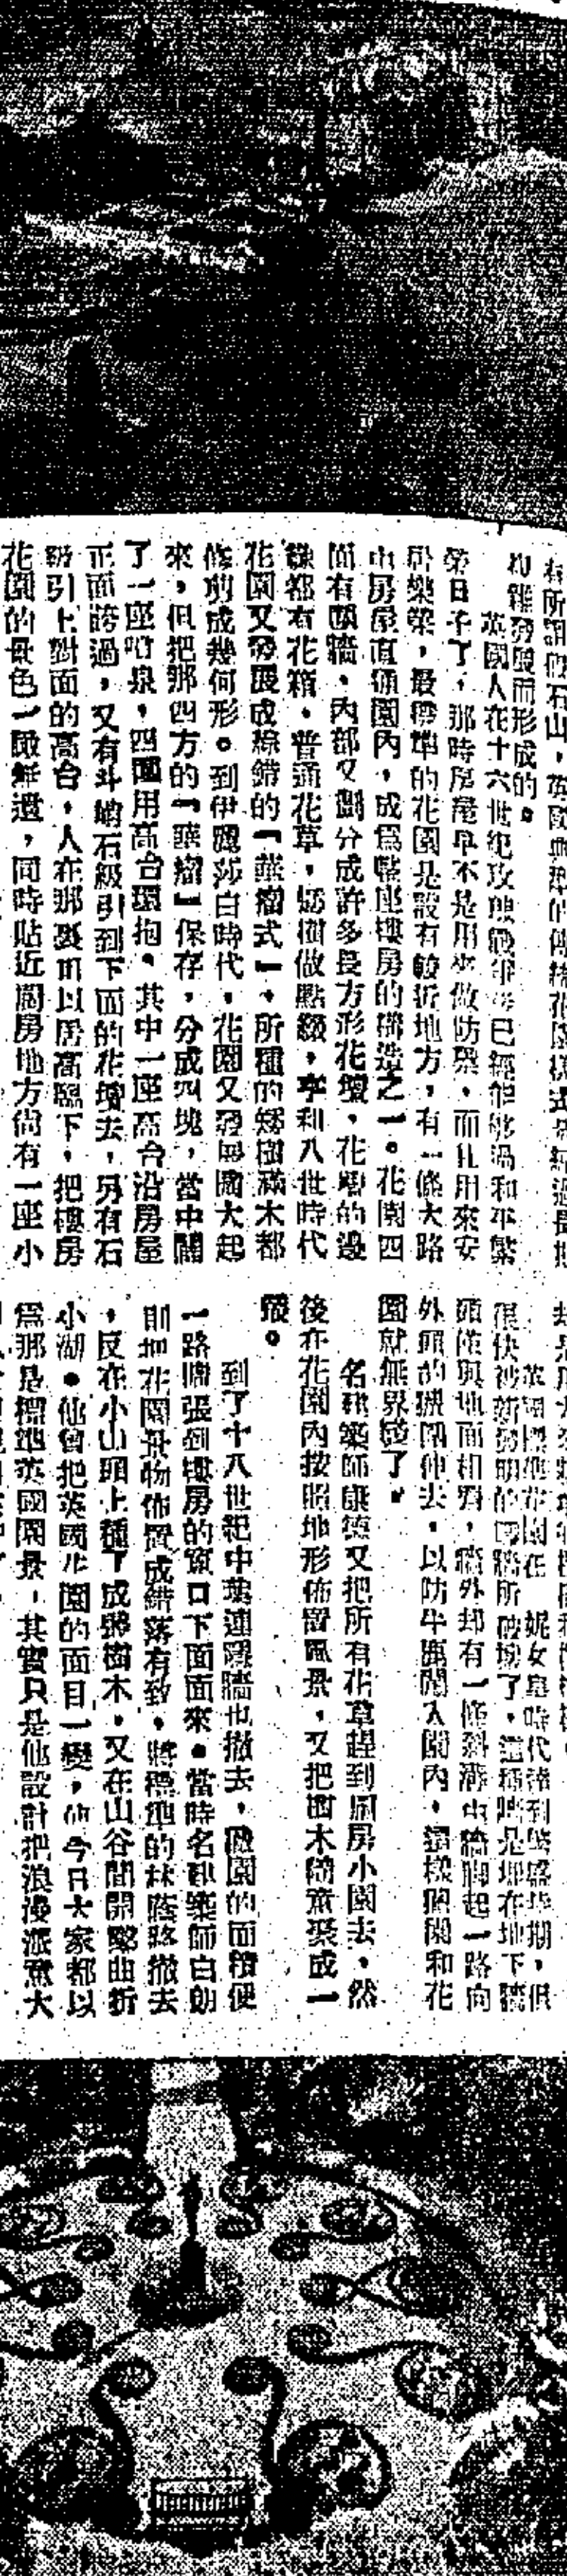 有所謂假石山，英國
複雜發展而形成的。
英國人在十六世紀玫瑰戰爭後已經能够過和平繁
榮日子了，那時房屋早不是用來做防禦，而且用來安
居樂業，最標準的花園是設有較近地方，有一條大路
由房屋直通園內，成爲整座樓房的構造之一。花園四
面有圍牆，內部又劃分成許多長方形花壇，花壇的邊
緣都有花箱，普通花草，矮樹做點綴，亨利八世時代
花園又發展成綜錯的「華瘤式」，所種的矮樹滿木都
修剪成幾何形。到伊麗莎白時代，花園又發展闊大起
來，但把那四方的「華瘤」保存，分成四塊，當中闢
了一座噴泉，四圍用高台環抱。其中一座高台沿房屋
正面跨過，又有斗峭石級引到下面的花壇去，另有石
級引上對面的高台，人在那裏可以居高臨下，把樓房
花園的景色一覽無遺，同時貼近閣房地方尚有一座小
英國標準花園在 妮女皇時代達到繁盛時期，但
很快被新發明的圍牆所破壞了，這種牆是埋在地下牆
頭僅與地面相齊，牆外却有一條斜溝由牆脚起一路向
外面的獵園伸去，以防牛鹿闖入園內，這樣獵園和花
園就無界線了。
名建築師康德又把所有花草趕到厨房小園去，然
後在花園內按照地形佈置風景，又把樹木簡直聚成一
叢。
到了十八世紀中葉連隱牆也撤去，獵園的面積便
一路擴張到樓房的窗口下面來。當時名建築師白朗
則把花園景物佈置成錯落有致，將標準的林蔭路撤去
，反在小山頭上種了成叢樹木，又在山谷間開鑿曲折
小湖。他曾把英國花園的面目一變，但今日大家都以
爲那是標準英國園景，其實只是他設計把浪漫派意大